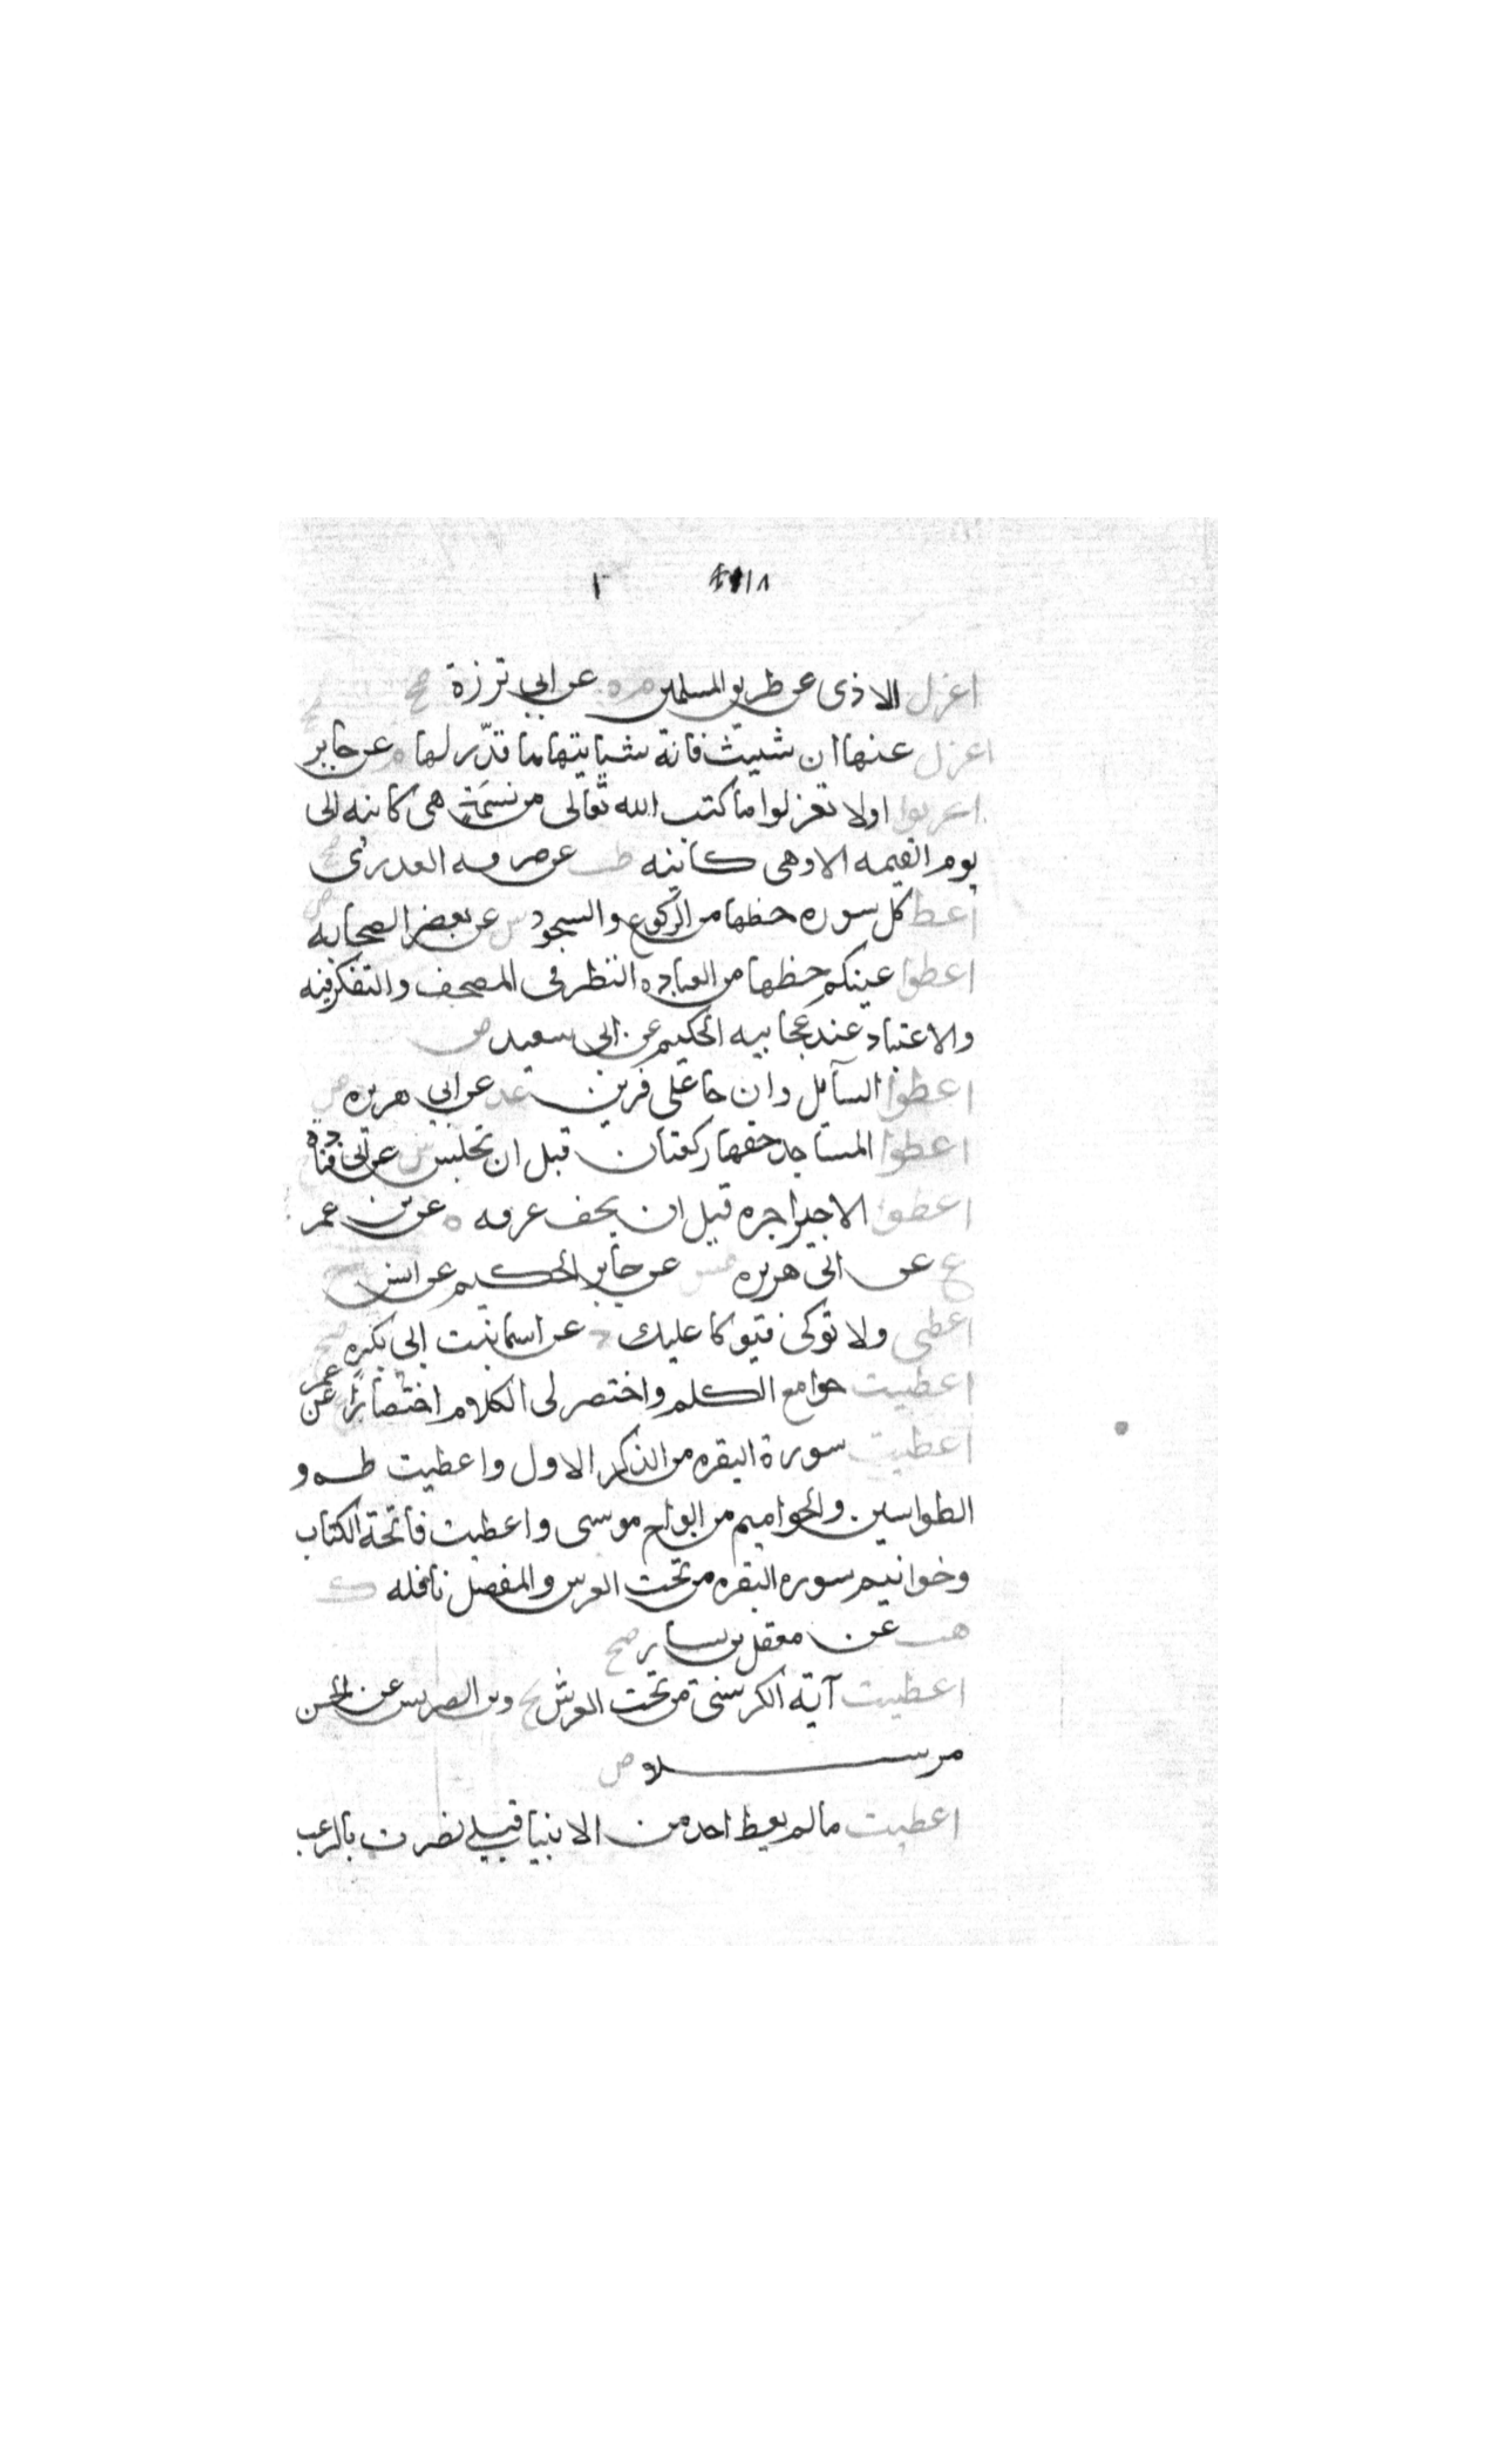 اعزل الاذى عن طريق المسلمين م ه عن ابي برزة صح
اعزل عنها ان شيت فانة سيا تيها ما قدّر لها ه عن جابر
اعزلوا اولا تعزلوا ما كتب الله تعالى من نسمة هى كاينه الى
يوم القيمه الا وهى كاينه طب عن صرمه العدرى صح
اعط كل سوره حظها من الركوع والسجود ش عن بعض الصحابه
اعطوا عينكم حظها من العباده النظر فى المصحف والتفكر فيه
والاعتبار عند عجايبه الحكيم عن ابى سعيد ض
اعطوا السآيل وان جا على فرس عد عن ابي هريره ض
اعطوا المساجد حقها ركعتان قبل ان تجلس ش عن ابى قتاده
اعطوا الاجير اجره قبل ان يجف عرقه ه عن بن عمر
ع عن ابى هريره طس عن جابر الحكيم عن انس
اعطى ولا توكى فيوكا عليك د عن اسما بنت ابى بكره صح
اعطيت جوامع الكلم واختصر لى الكلام اختصارا ع عن عمر
اعطيت سورة البقره من الذكر الاول واعطيت طه و
الطواسين والحواميم من الواح موسى واعطيت فاتحة الكتاب
وخواتيم سوره البقره من تحت العرش والمفصل نافله ك
هب عن معقل بن يسار صح
اعطيت آية الكرسى من تحت العرش تخ وبن الضريس عن الحسن
مرسلا ض
اعطيت ما لم يعط احد من الانبيا قبلي نصرت بالرعب